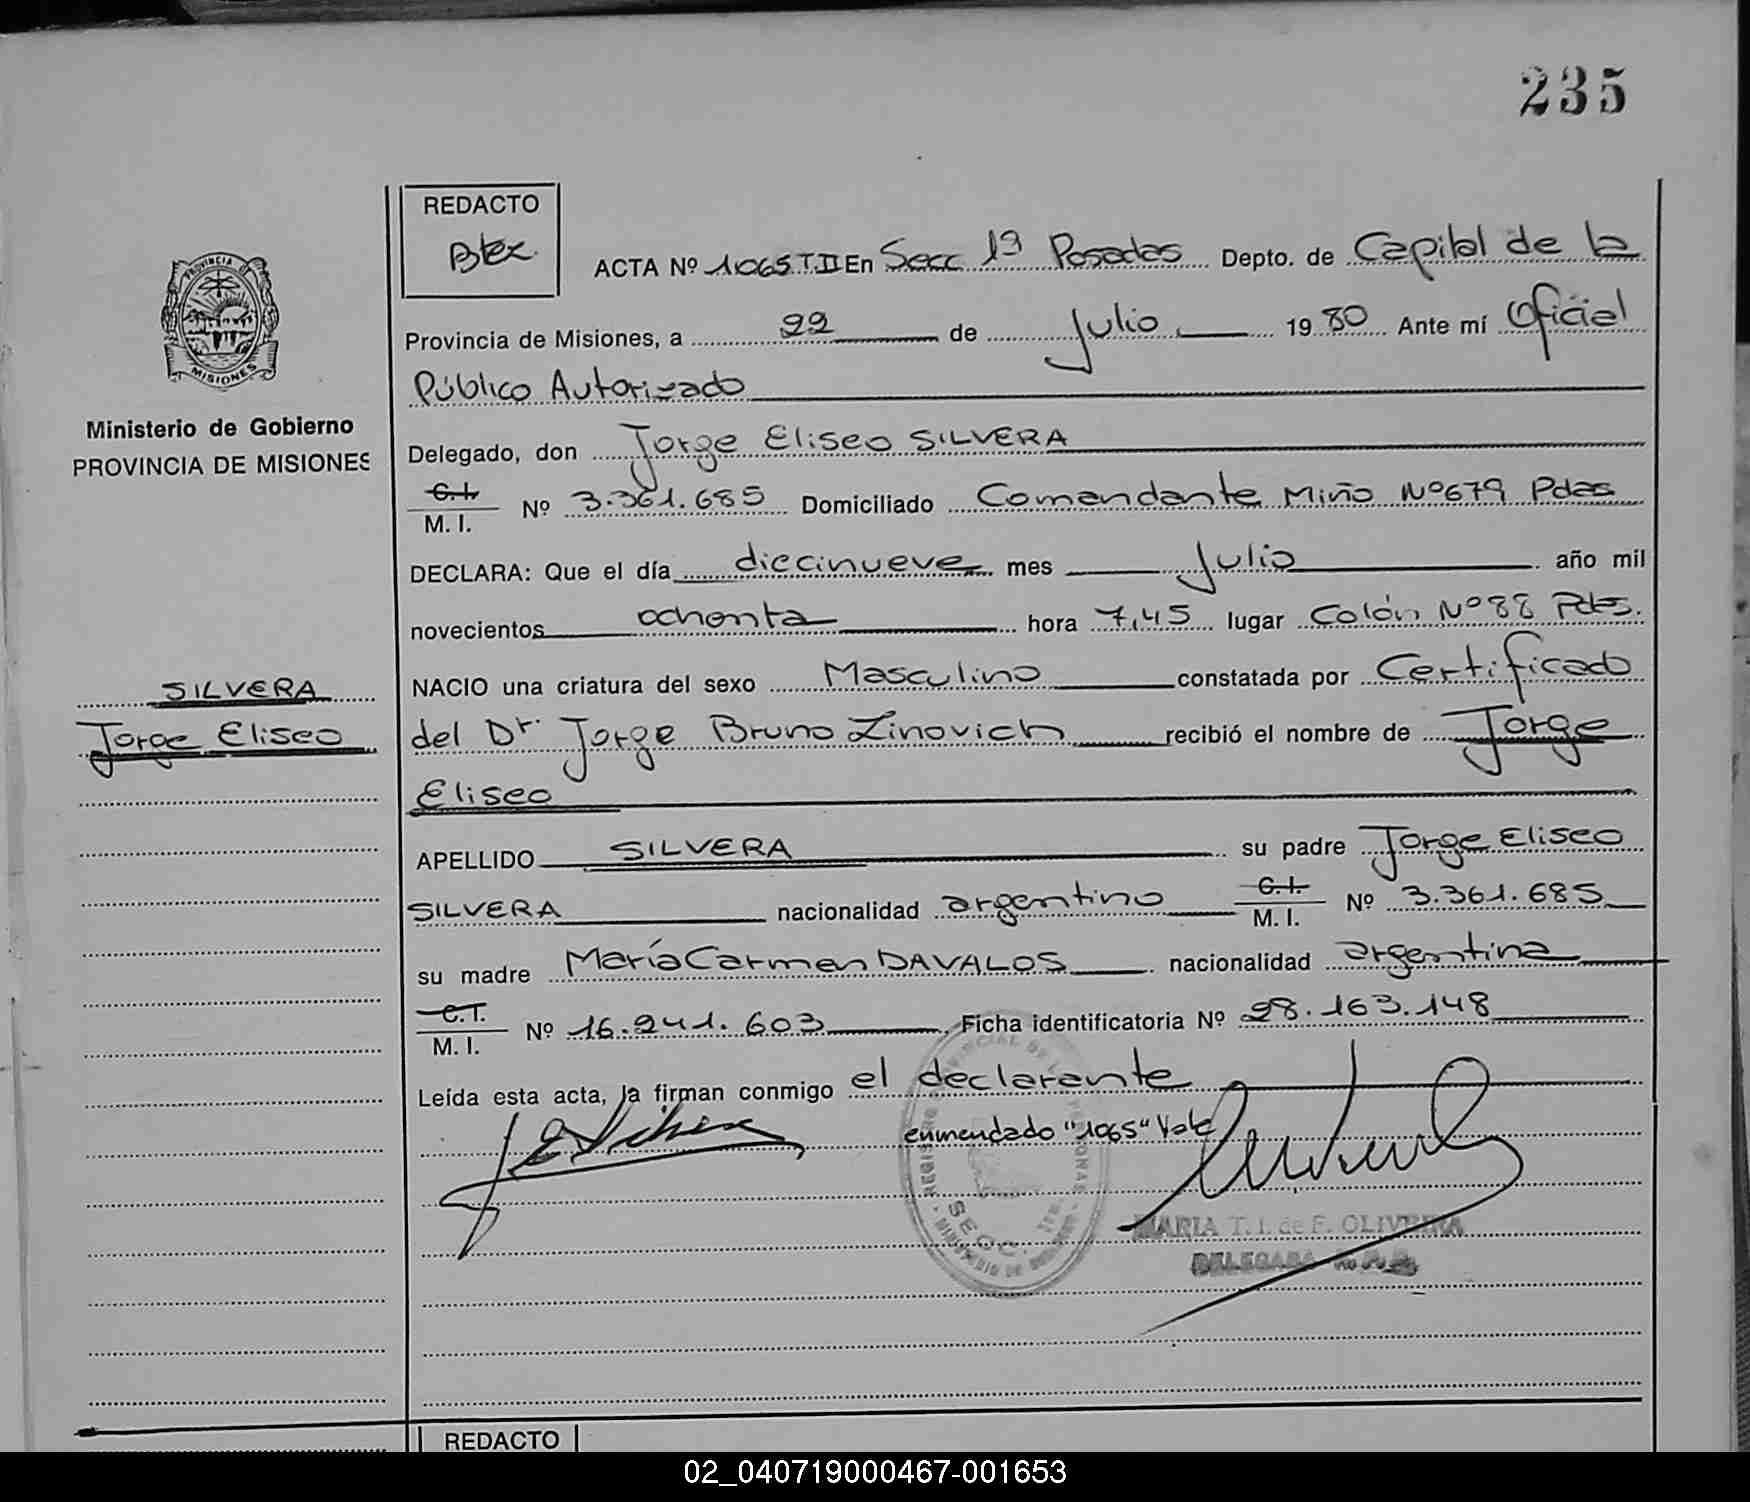 235
REDACTO
ACTA Nº 1065 T. II En Secc 1ª Posadas Depto. de Capital de la
Provincia de Misiones, a 22 de Julio 1980 Ante mí Oficial
Público Autorizado
PROVINCIA DE
MISIONES
Ministerio de Gobierno
PROVINCIA DE MISIONES
Delegado, don Jorge Eliseo SILVERA
C.I. M. I. Nº 3.361.685 Domiciliado Comandante Miño Nº 679 Pdas
DECLARA: Que el día diecinueve mes Julio año mil
novecientos ochenta hora 7,45 lugar Colón Nº 88 Pdas.
SILVERA
Jorge Eliseo
NACIO una criatura del sexo Masculino constatada por Certificado
del Dr. Jorge Bruno Zinovich recibió el nombre de Jorge
Eliseo
APELLIDO SILVERA su padre Jorge Eliseo
SILVERA nacionalidad argentino C.I. M. I. Nº 3.361.685
su madre María Carmen DAVALOS nacionalidad argentina
C.I. M. I. Nº 16.241.603 Ficha identificatoria Nº 28.163.148
Leída esta acta, la firman conmigo el declarante
enmendado "1065" Vale
MARIA T. I. de F. OLIVEIRA
DELEGADA
REDACTO
02_040719000467-001653